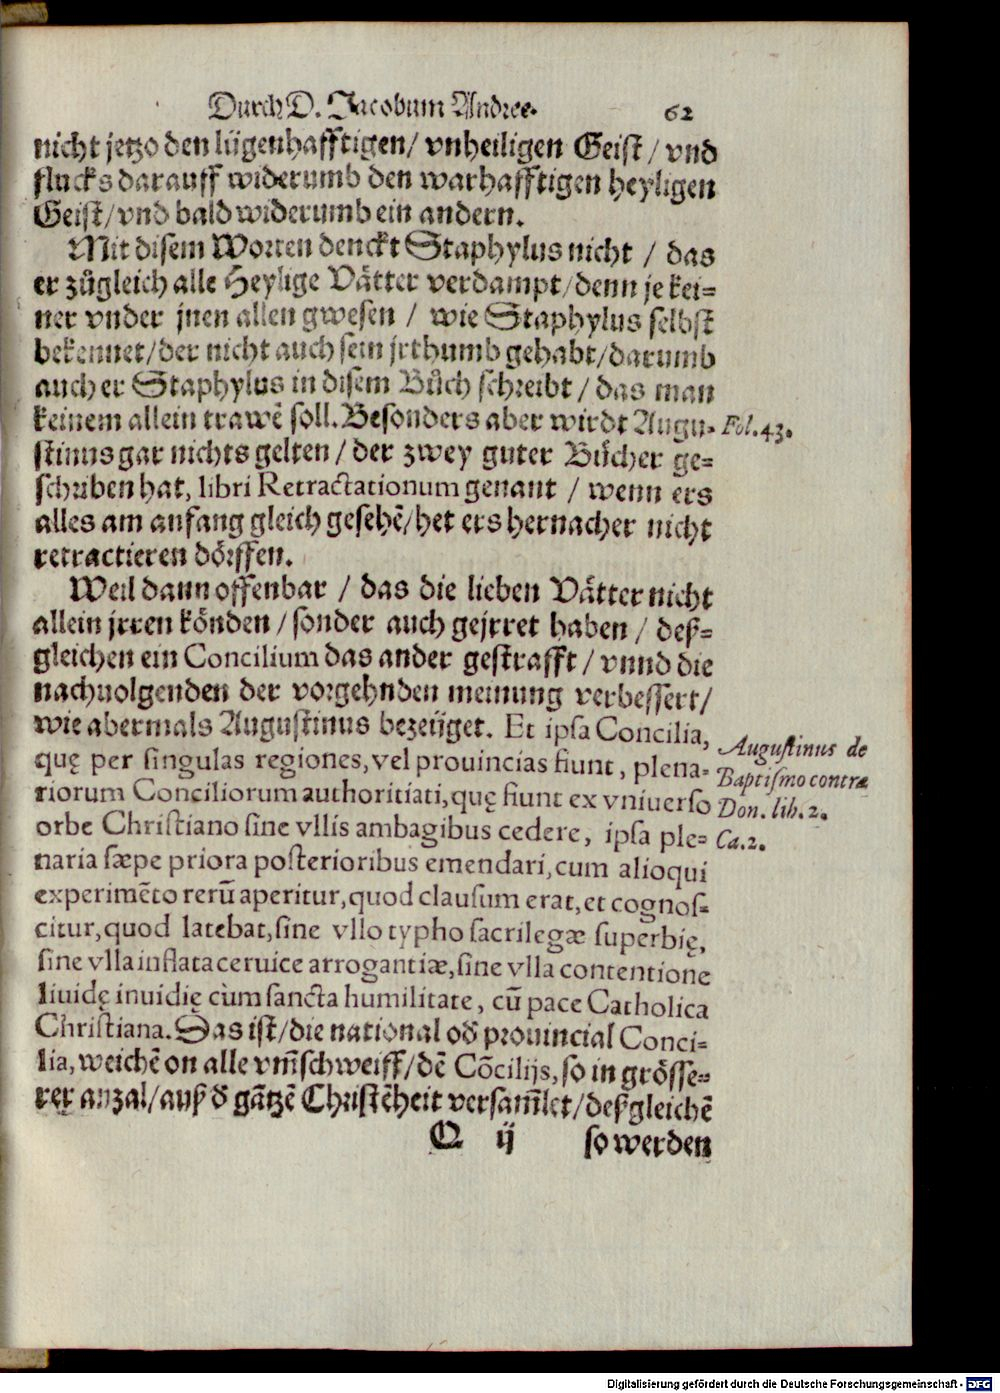 Durch D. Jacobum Andree. 62
nicht jetzo den lügenhafftigen/ vnheiligen Geist / vnd
flucks darauff widerumb den warhafftigen heyligen
Geist/ vnd bald widerumb ein andern.
Mit disem Worten denckt Staphylus nicht / das
er zůgleich alle Heylige Vätter verdampt/ denn je kei=
ner vnder jnen allen gwesen / wie Staphylus selbst
bekennet/ der nicht auch sein jrthumb gehabt/ darumb
auch er Staphylus in disem Bůch schreibt / das man
keinem allein trawē soll. Besonders aber wirdt Augu=
Fol. 43.
stinus gar nichts gelten / der zwey guter Bücher ge=
schriben hat, libri Retractationum genant / wenn ers
alles am anfang gleich gesehē/ het ers hernacher nicht
retractieren dörffen.
Weil dann offenbar / das die lieben Vätter nicht
allein jrren könden / sonder auch gejrret haben / deß=
gleichen ein Concilium das ander gestrafft / vnnd die
nachuolgenden der vorgehnden meinung verbessert/
wie abermals Augustinus bezeüget. Et ipsa Concilia,
quę per singulas regiones, vel prouincias fiunt, plena=
riorum Conciliorum authoritiati, quę fiunt ex vniuerso
orbe Christiano sine vllis ambagibus cedere, ipsa ple=
Augustinus de
Baptismo contra
Don. lib. 2.
Ca. 2.
naria sæpe priora posterioribus emendari, cum alioqui
experimēto rerū aperitur, quod clausum erat, et cognos=
citur, quod latebat, sine vllo typho sacrilegæ superbię,
sine vlla inflata ceruice arrogantiæ, sine vlla contentione
liuidę inuidię cùm sancta humilitate, cū pace Catholica
Christiana. Das ist/ die national oď prouincial Conci=
lia, weichē on alle vm̄schweiff/ dē Cōcilijs, so in grösse=
rer anzal/ auß ď gātzē Christēheit versam̄let/ deßgleichē
Q ij so werden
Digitalisierung gefördert durch die Deutsche Forschungsgemeinschaft - DFG